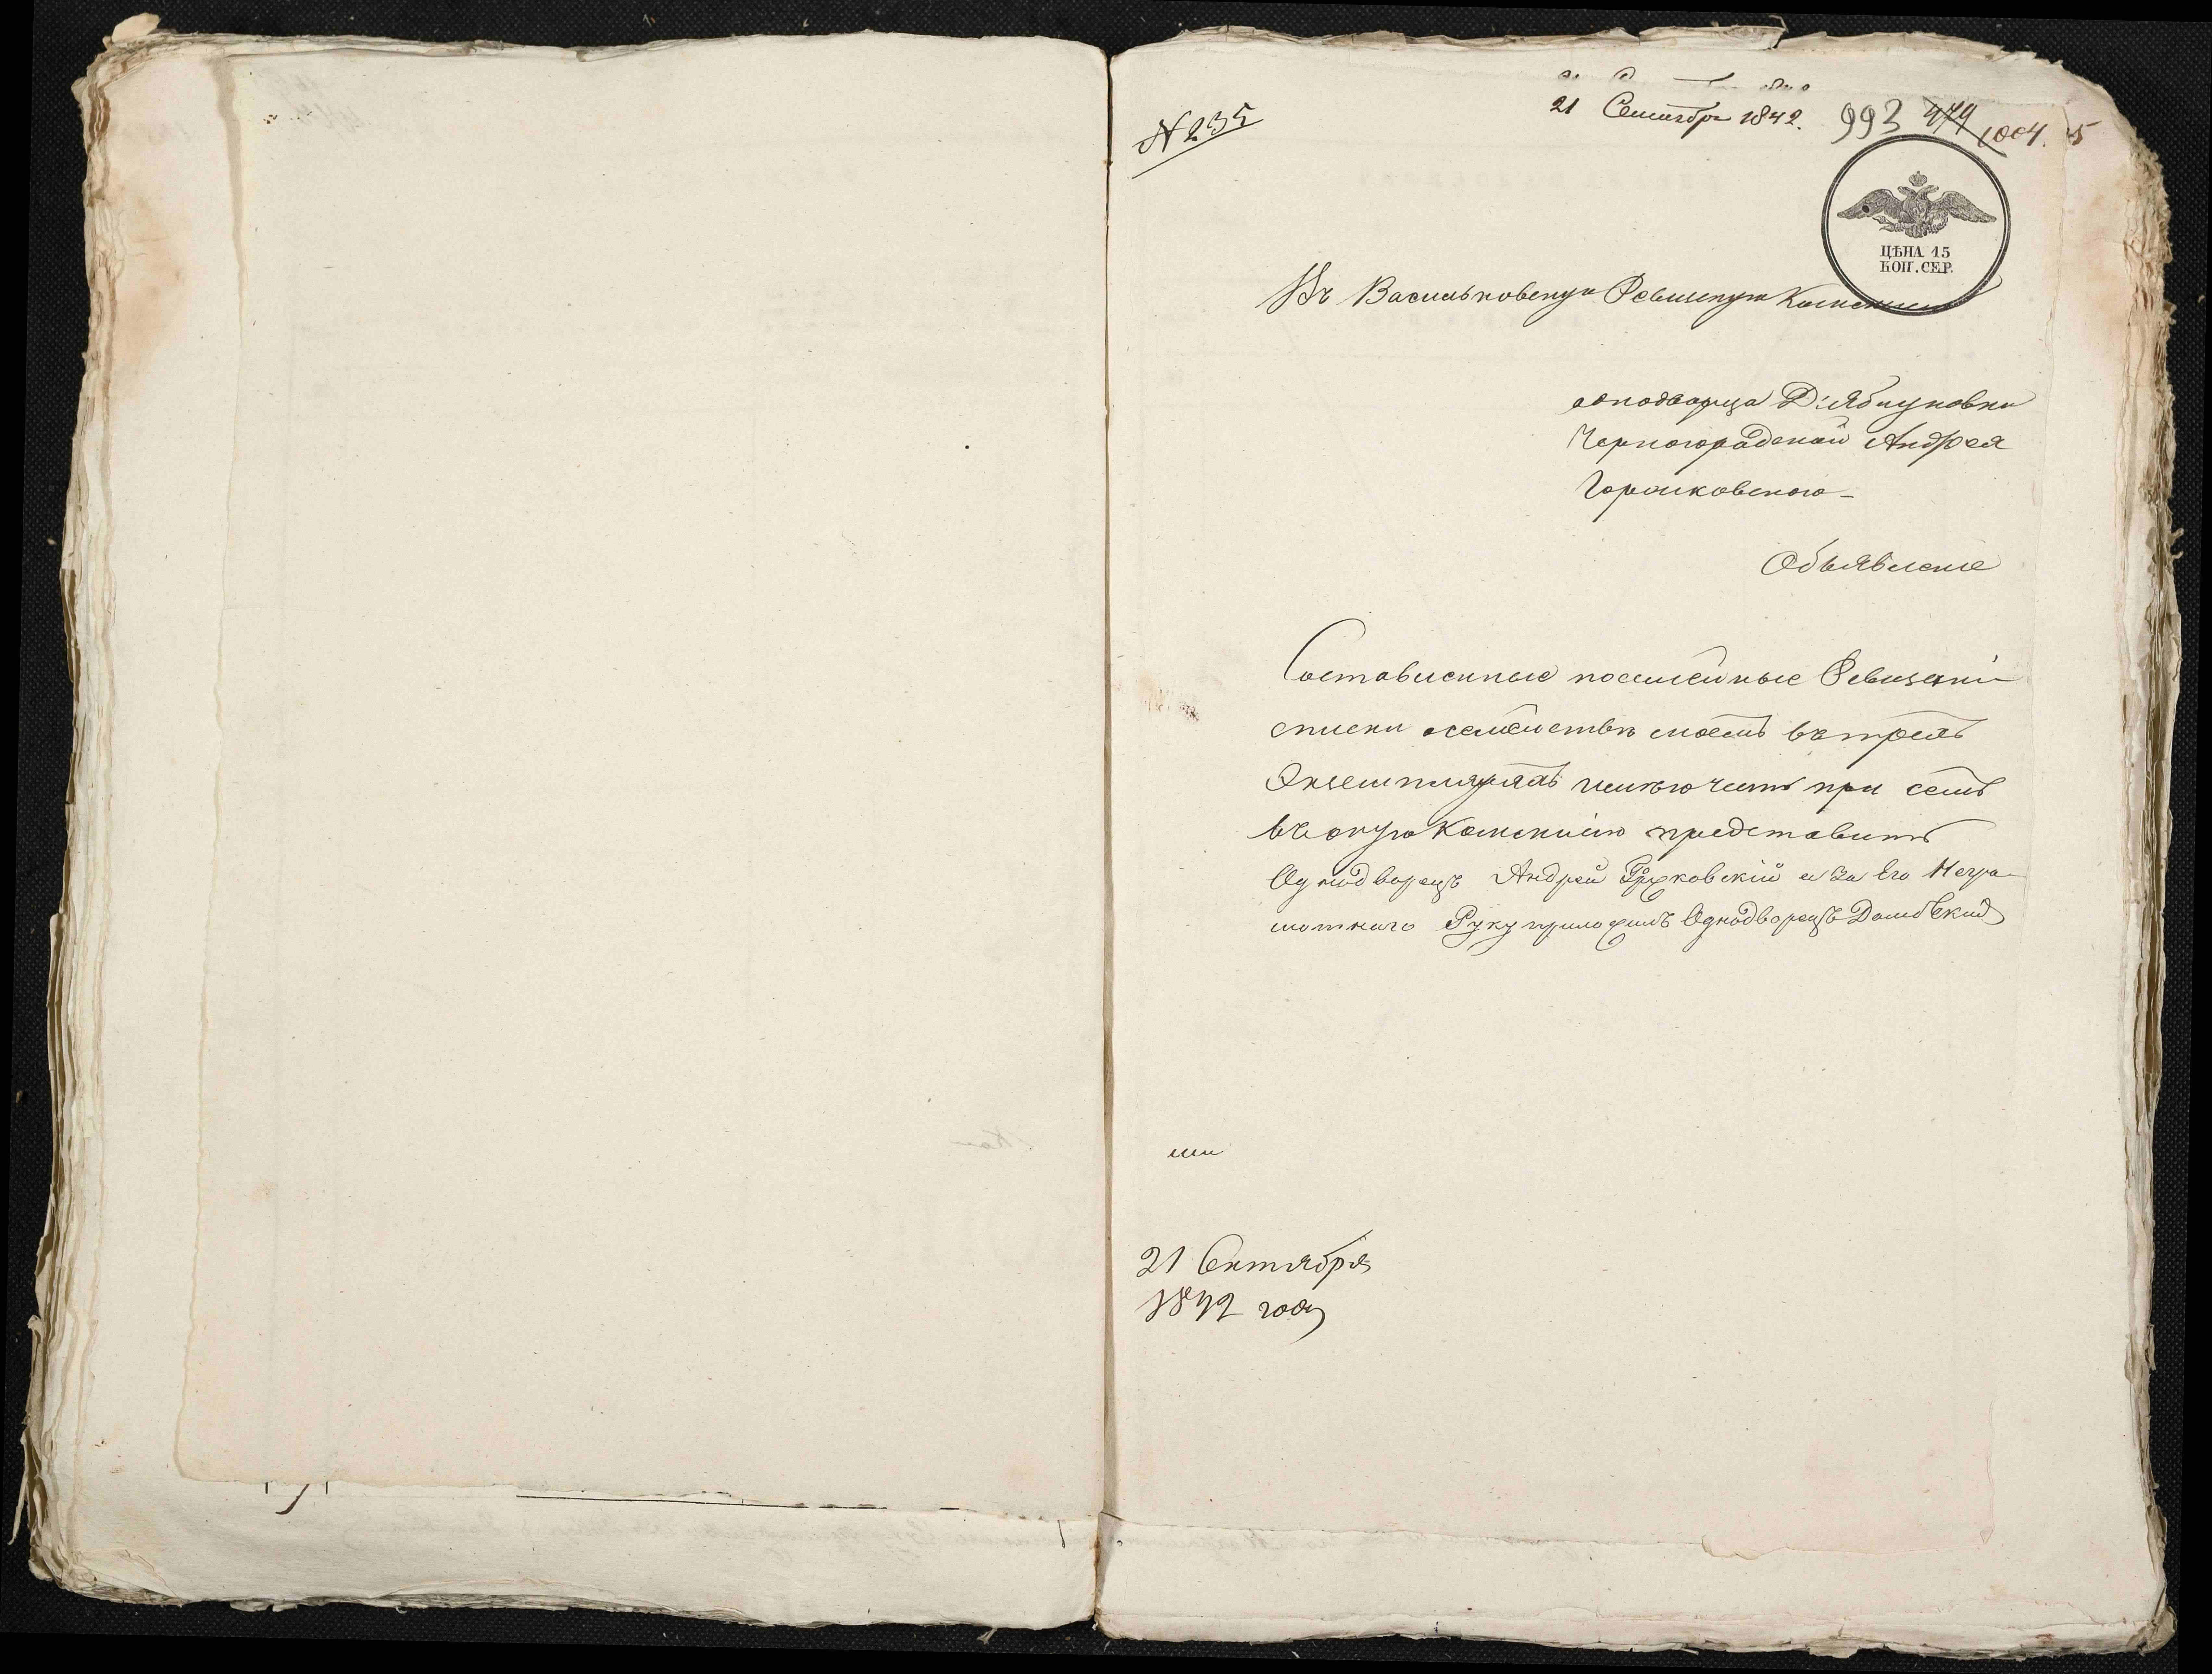 № 235
21 Сентября 1842.
993 479 1004. 5
ЦѢНА 15
КОП. СЕР.
Въ Васильковскую Ревизскую Комисию
однодворца Д: Яблуновки
Черногородской Андрея
Горжковского
Объявление
Составленные посемейные Ревизские
списки о семействѣ моемъ в трехъ
Экземплярахъ имѣю честь при семъ
въ оную Комисию представить
Однодворецъ Андрей Горжковскій а За Его Негра-
мотнаго Руку приложилъ Однодворецъ
21 Сентября
1842 года